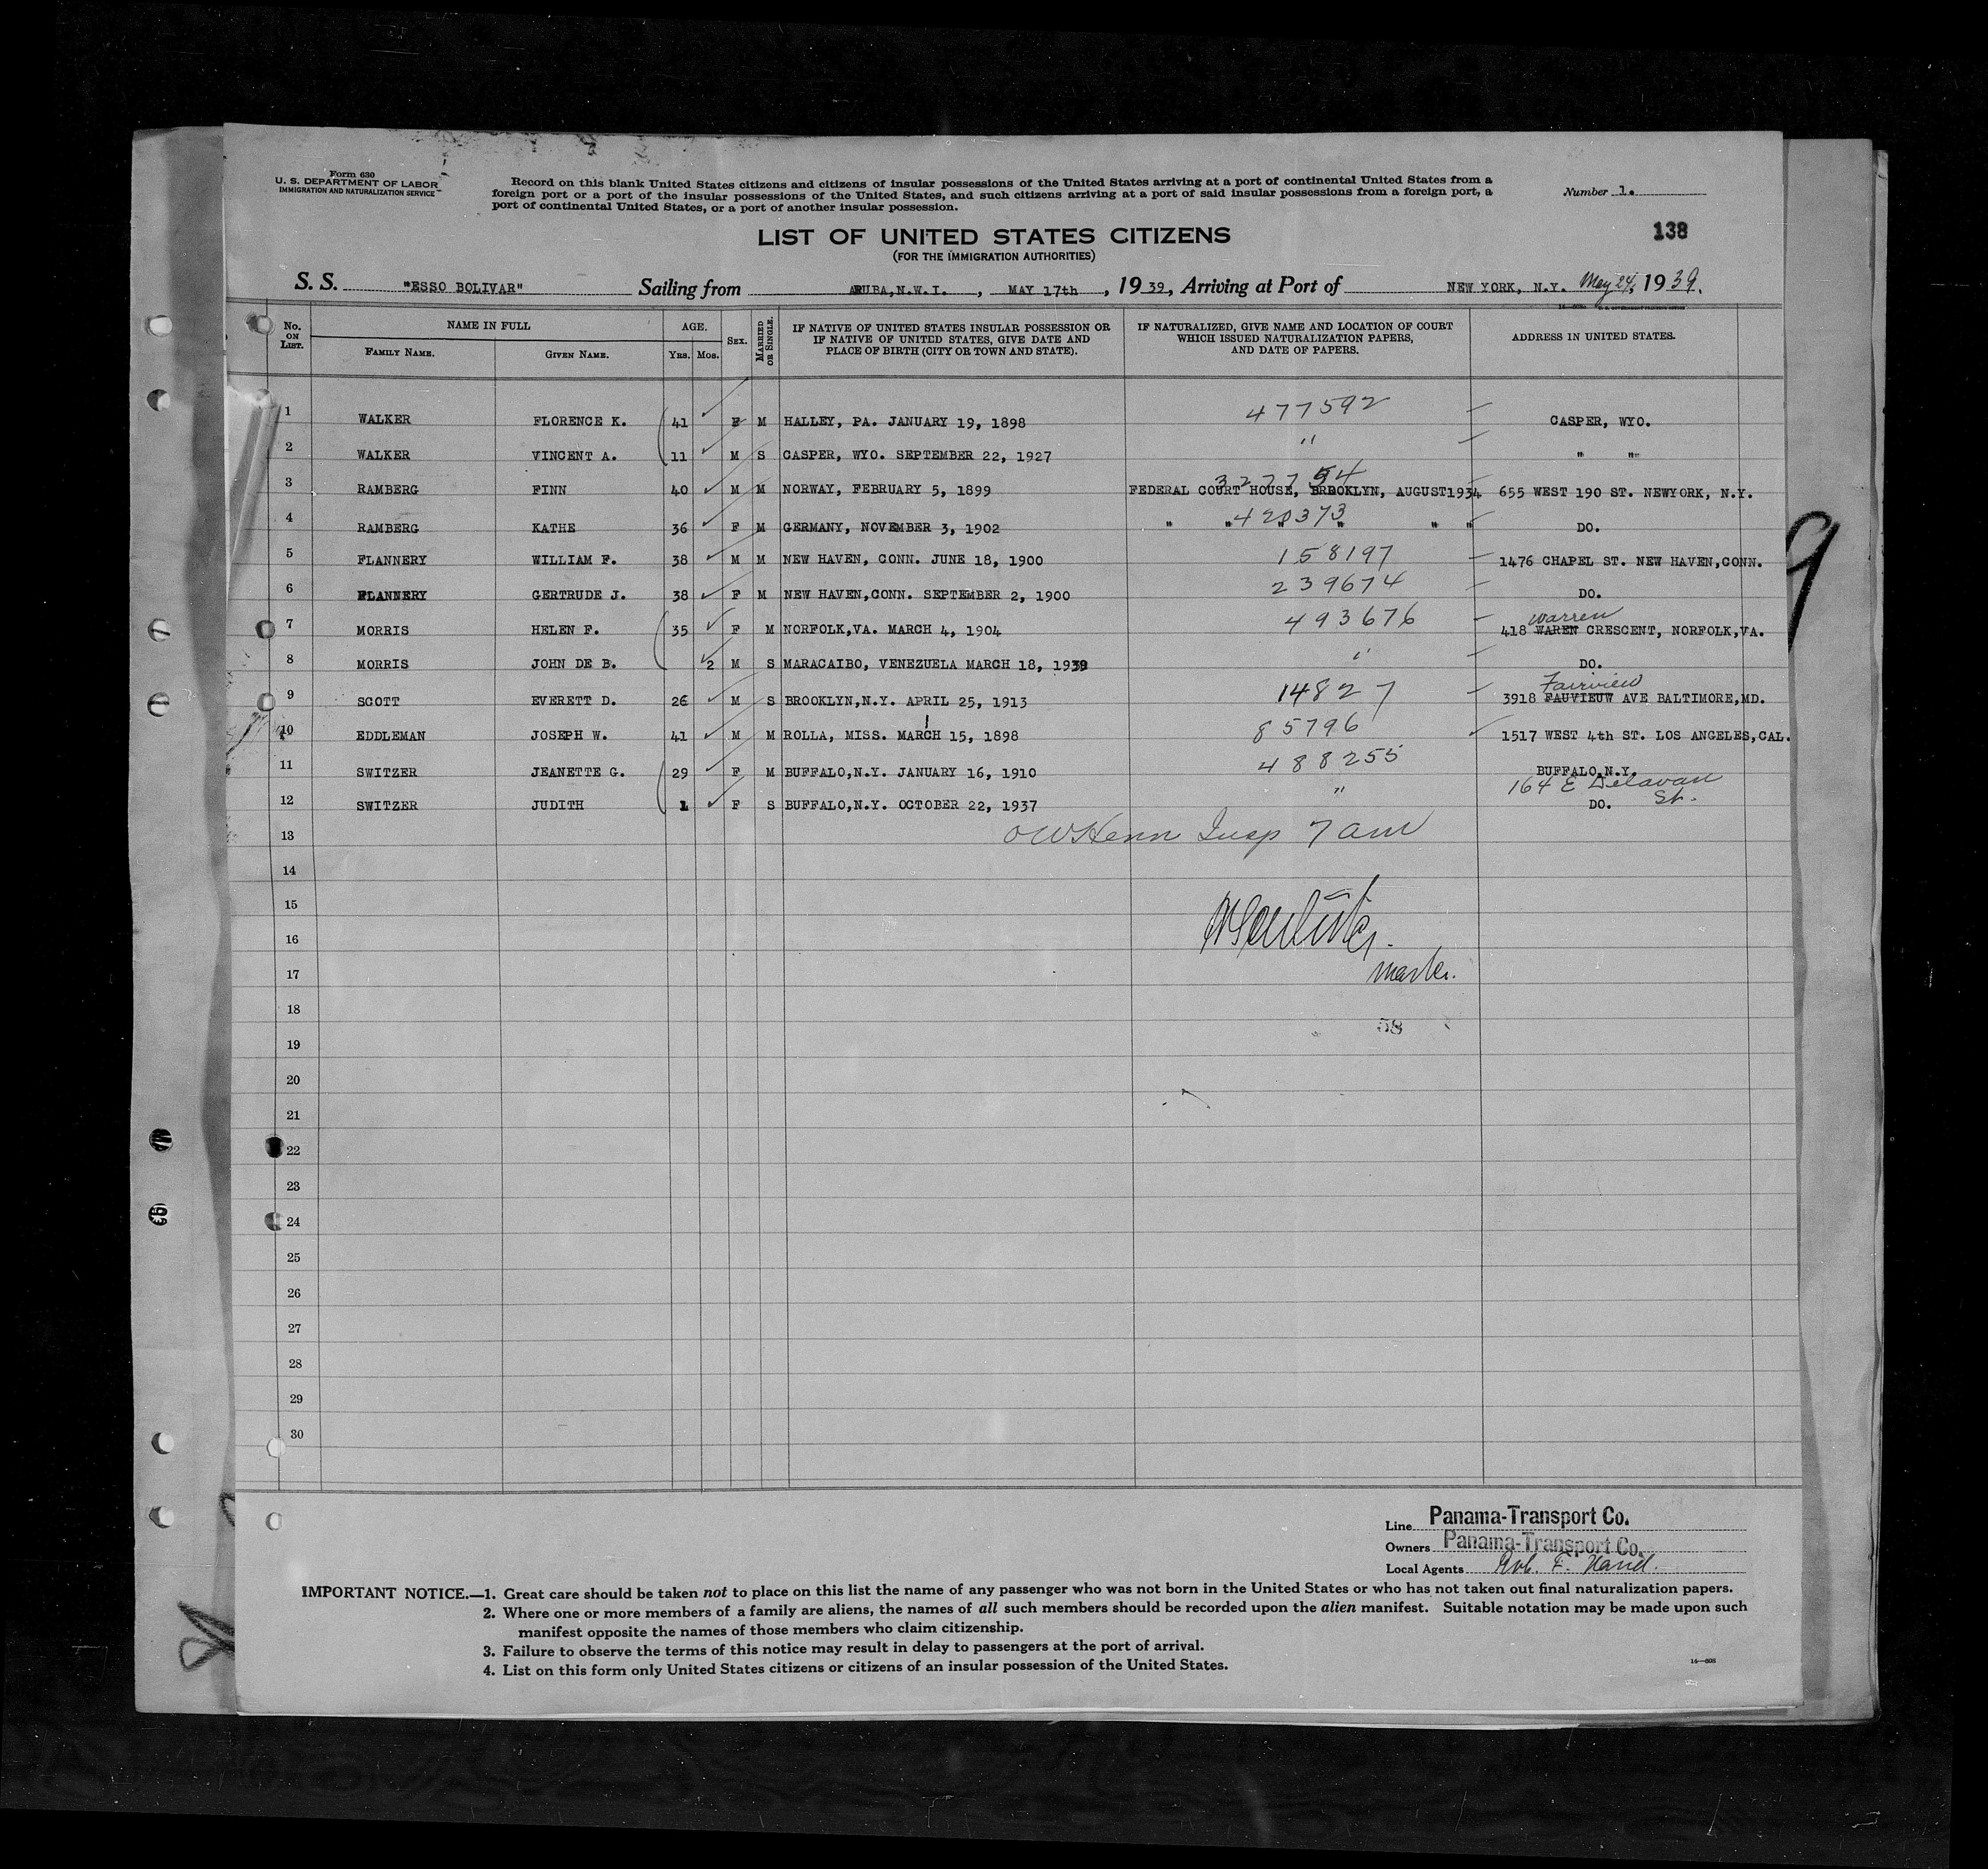 Form 630
U. S. DEPARTMENT OF LABOR
IMMIGRATION AND NATURALIZATION SERVICE
Record on this blank United States citizens and citizens of insular possessions of the United States arriving at a port of continental United States from a
foreign port or a port of the insular possessions of the United States, and such citizens arriving at a port of said insular possessions from a foreign port, a
port of continental United States, or a port of another insular possession.
Number 1.
138
LIST OF UNITED STATES CITIZENS
(FOR THE IMMIGRATION AUTHORITIES)
S. S. "ESSO BOLIVAR" Sailing from ARUBA, N.W.I. , MAY 17th , 1939, Arriving at Port of NEW YORK, N.Y. May 24, 1939.
No. ON LIST. NAME IN FULL AGE. SEX. MARRIED OR SINGLE. IF NATIVE OF UNITED STATES INSULAR POSSESSION OR IF NATIVE OF UNITED STATES, GIVE DATE AND PLACE OF BIRTH (CITY OR TOWN AND STATE). IF NATURALIZED, GIVE NAME AND LOCATION OF COURT WHICH ISSUED NATURALIZATION PAPERS, AND DATE OF PAPERS. ADDRESS IN UNITED STATES.
FAMILY NAME. GIVEN NAME. YRS. MOS.
1 WALKER FLORENCE K. 41 F M HALLEY, PA. JANUARY 19, 1898 477592 CASPER, WYO.
2 WALKER VINCENT A. 11 M S CASPER, WYO. SEPTEMBER 22, 1927 " " "
3 RAMBERG FINN 40 M M NORWAY, FEBRUARY 5, 1899 327754 FEDERAL COURT HOUSE, BROOKLYN, AUGUST1934 655 WEST 190 ST. NEWYORK, N.Y.
4 RAMBERG KATHE 36 F M GERMANY, NOVEMBER 3, 1902 " " 420373 " " " " DO.
5 FLANNERY WILLIAM F. 38 M M NEW HAVEN, CONN. JUNE 18, 1900 158197 1476 CHAPEL ST. NEW HAVEN,CONN.
6 FLANNERY GERTRUDE J. 38 F M NEW HAVEN,CONN. SEPTEMBER 2, 1900 239674 DO.
7 MORRIS HELEN F. 35 F M NORFOLK,VA. MARCH 4, 1904 493676 Warren 418 WAREN CRESCENT, NORFOLK,VA.
8 MORRIS JOHN DE B. 2 M S MARACAIBO, VENEZUELA MARCH 18, 1939 " DO.
9 SCOTT EVERETT D. 26 M S BROOKLYN,N.Y. APRIL 25, 1913 14827 Fairview 3918 FAUVIEUW AVE BALTIMORE,MD.
10 EDDLEMAN JOSEPH W. 41 M M ROLLA, MISS. MARCH 15, 1898 85796 1517 WEST 4th ST. LOS ANGELES,CAL.
11 SWITZER JEANETTE G. 29 F M BUFFALO,N.Y. JANUARY 16, 1910 488255 BUFFALO,N.Y.
164 E Delavan St.
12 SWITZER JUDITH 1 F S BUFFALO,N.Y. OCTOBER 22, 1937 " DO.
13 Insp 7 am
14
15
16
17 master.
18
58
19
20
21
22
23
24
25
26
27
28
29
30
Line Panama-Transport Co.
Owners Panama-Transport Co.
Local Agents F.
IMPORTANT NOTICE.—1. Great care should be taken not to place on this list the name of any passenger who was not born in the United States or who has not taken out final naturalization papers.
2. Where one or more members of a family are aliens, the names of all such members should be recorded upon the alien manifest. Suitable notation may be made upon such
manifest opposite the names of those members who claim citizenship.
3. Failure to observe the terms of this notice may result in delay to passengers at the port of arrival.
4. List on this form only United States citizens or citizens of an insular possession of the United States.
14—608